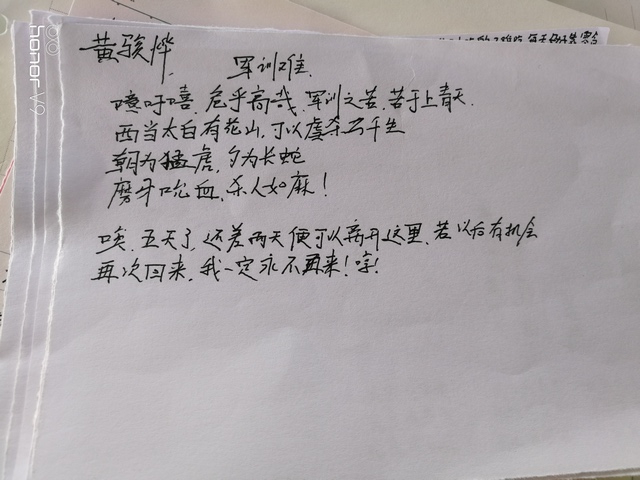 黄骏烨
军训难.
噫吁嘻,危乎高哉,军训之苦,苦于上青天.
西当太白有花山,可以虐杀万千生
朝为猛虎,夕为长蛇
磨牙吮血,杀人如麻!
唉,五天了,还差两天便可以离开这里,若以后有机会
再次回来,我一定永不再来!哼!
honor V9